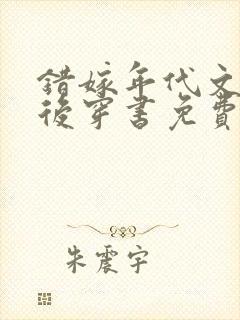 錯嫁年代文
後穿書免費
朱震宇